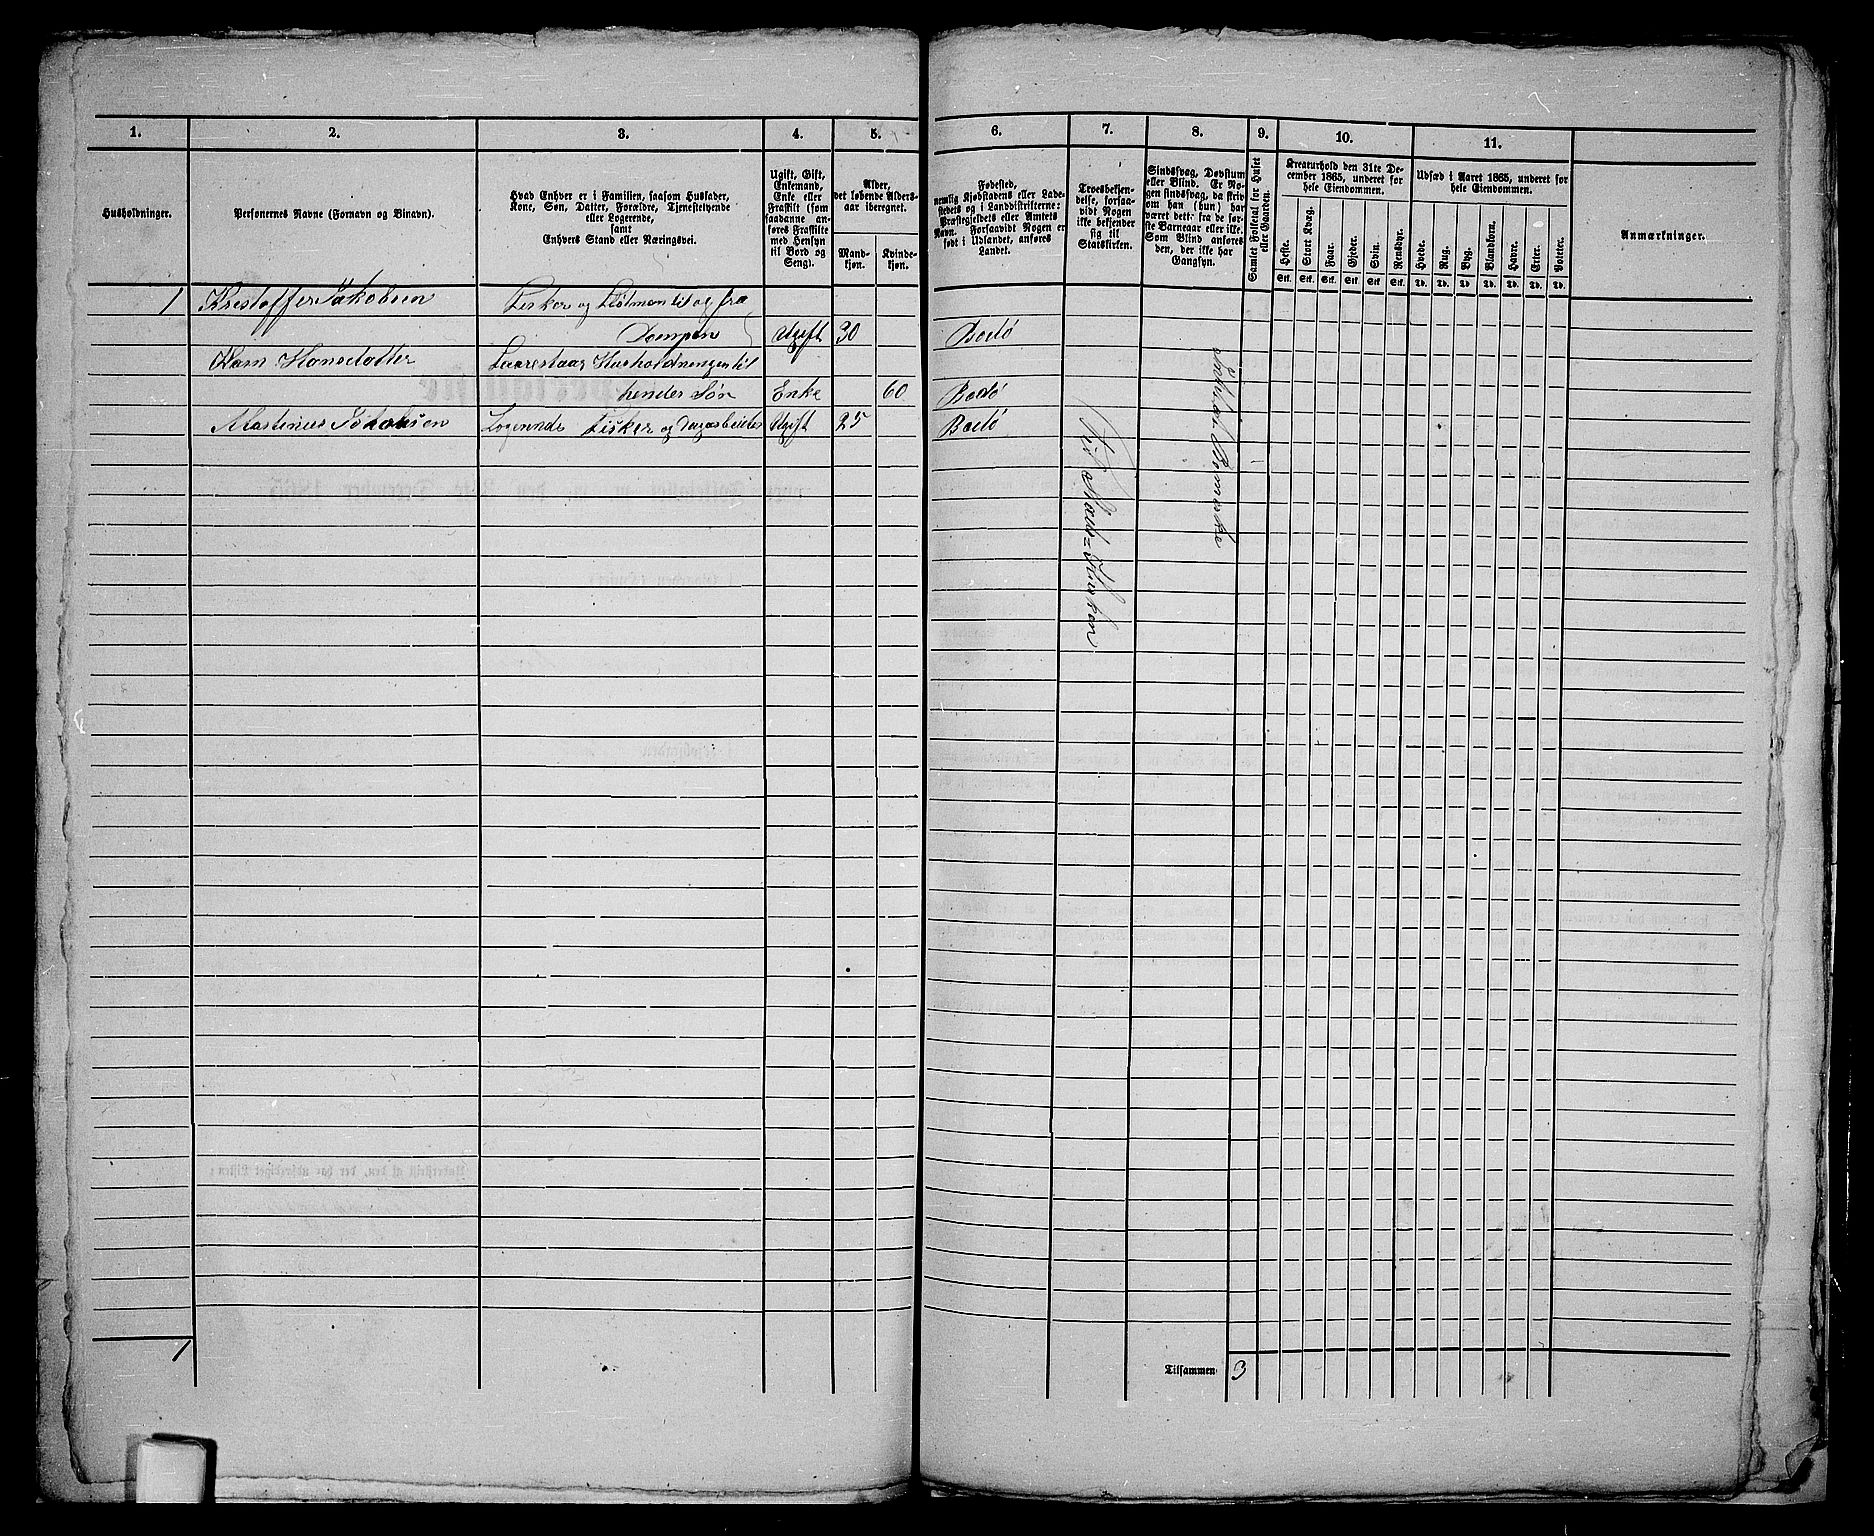 1. 2. 3. 4. 5. 6. 7. 8. 9. 10. 11.
Husholdninger.
Personernes Navne (Fornavn og Binavn).
Hvad Enhver er i Familien, saasom Husfader,
Kone, Søn, Datter, Forældre, Tjenestetyende
eller Logerende,
samt
Enhvers Stand eller Næringsvei.
Ugift, Gift,
Enkemand,
Enke eller
Fraskilt (som
saadanne an-
føres Fraskilte
med Hensyn
til Bord og
Seng).
Alder,
det løbende Alders-
aar iberegnet.
Mand-
kjøn.
Kvinde-
kjøn.
Fødested,
nemlig Kjøbstadens eller Lade-
stedets og i Landdistrikterne:
Præstegjeldets eller Amtets
Navn. Forsaavidt Nogen er
født i Udlandet, anføres
Landet.
Troesbekjen-
delse, forsaa-
vidt Nogen
ikke bekjender
sig til
Statskirken.
Sindssvag, Døvstum
eller Blind. Er No-
gen sindssvag, da skriv
om han (hun) har
været det fra de før-
ste Barneaar eller ikke.
Som Blind anføres
den, der ikke har
Gangsyn.
Samlet Folketal for Huset
eller Gaarden.
Kreaturhold den 31te De-
cember 1865, underet for
hele Eiendommen.
Heste. Stort Kvæg. Faar. Gjeder. Svin. Rensdyr.
Stk. Stk. Stk. Stk. Stk. Stk.
Udsæd i Aaret 1865, underet for
hele Eiendommen.
Hvede. Rug. Byg. Blandkorn. Havre. Erter. Poteter.
Td. Td. Td. Td. Td. Td. Td.
Anmærkninger.
1 Krestoffer Jakobsen Fisker og Flötman til og fra
Dampen Ugift 30 Bodö
Hansdatter Husholdningen til
hendes Sön Enke 60 Bodö
Martinus Jakobsen Logerende Fisker og Ugift 25 Bodö
Til Stats=Kirken
1
Tilsammen 3